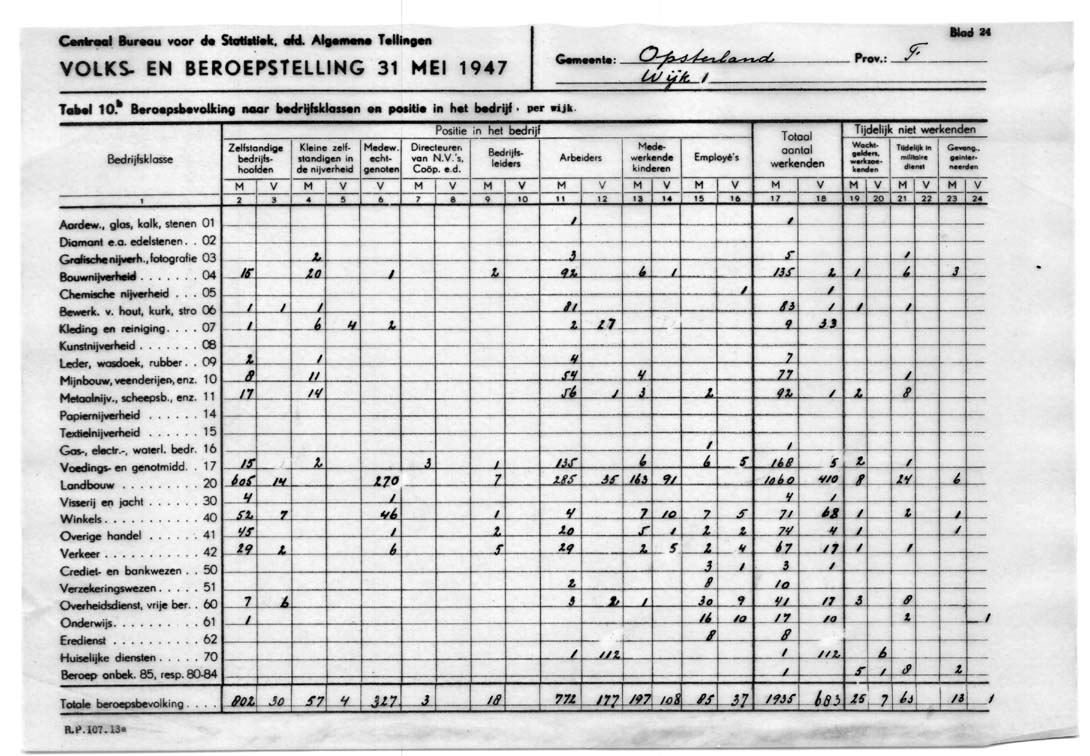 Centraal Bureau voor de Statistiek, afd. Algemene Tellingen
Blad 24
VOLKS- EN BEROEPSTELLING 31 MEI 1947
Gemeente: Opsterland Prov.: F.
Wijk 1
Tabel 10.b Beroepsbevolking naar bedrijfsklassen en positie in het bedrijf, per wijk.
Bedrijfsklasse
Positie in het bedrijf
Totaal aantal werkenden
Tijdelijk niet werkenden
Zelfstandige bedrijfshoofden
Kleine zelfstandigen in de nijverheid
Medew. echtgenoten
Directeuren van N.V.'s, Coöp. e.d.
Bedrijfsleiders
Arbeiders
Medewerkende kinderen
Employé's
Wachtgelders, werkzoekenden
Tijdelijk in militaire dienst
Gevang., geïnterneerden
M V M V V M V M V M V M V M V M V M V M V M V
1 2 3 4 5 6 7 8 9 10 11 12 13 14 15 16 17 18 19 20 21 22 23 24
Aardew., glas, kalk, stenen 01 1 1
Diamant e.a. edelstenen . . 02
Grafische nijverh., fotografie 03 2 3 5 1
Bouwnijverheid . . . . . . . 04 15 20 1 2 92 6 1 135 2 1 6 3
Chemische nijverheid . . . 05 1 1
Bewerk. v. hout, kurk, stro 06 1 1 1 81 83 1 1 1
Kleding en reiniging. . . . . 07 1 6 4 2 2 27 9 33
Kunstnijverheid . . . . . . . 08
Leder, wasdoek, rubber. . . 09 2 1 4 7
Mijnbouw, veenderijen, enz. 10 8 11 54 4 77 1
Metaalnijv., scheepsb., enz. 11 17 14 56 1 3 2 92 1 2 8
Papiernijverheid . . . . . . 14
Textielnijverheid . . . . . . 15
Gas-, electr.-, waterl. bedr. 16 1 1
Voedings- en genotmidd. . 17 15 2 3 1 135 6 6 5 168 5 2 1
Landbouw . . . . . . . . . 20 605 14 270 7 285 35 163 91 1060 410 8 24 6
Visserij en jacht . . . . . . 30 4 1 4 1
Winkels. . . . . . . . . . . 40 52 7 46 1 4 7 10 7 5 71 68 1 2 1
Overige handel . . . . . . 41 45 1 2 20 5 1 2 2 74 4 1 1
Verkeer . . . . . . . . . . 42 29 2 6 5 29 2 5 2 4 67 17 1 1
Crediet- en bankwezen. . . 50 3 1 3 1
Verzekeringswezen. . . . . 51 2 8 10
Overheidsdienst, vrije ber. . 60 7 6 3 2 1 30 9 41 17 3 8
Onderwijs. . . . . . . . . . 61 1 16 10 17 10 2 1
Eredienst . . . . . . . . . . 62 8 8
Huiselijke diensten . . . . . 70 1 112 1 112 6
Beroep onbek. 85, resp. 80-84 1 5 1 8 2
Totale beroepsbevolking . . . . 802 30 57 4 327 3 18 772 177 197 108 85 37 1935 683 25 7 63 13 1
R.P.107.13a